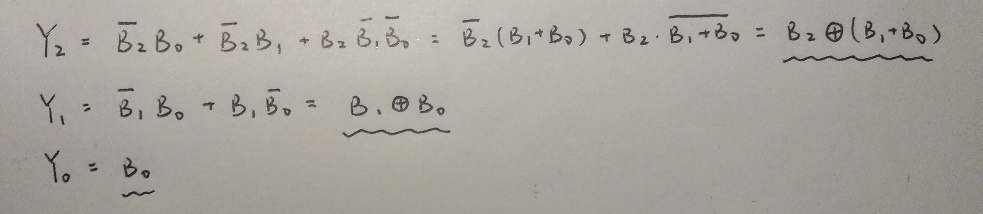 Y₂ = B̅₂B₀ + B̅₂B₁ + B₂B̅₁B̅₀ = B̅₂(B₁+B₀) + B₂·\overline{B₁+B₀} = B₂⊕(B₁+B₀)
Y₁ = B̅₁B₀ + B₁B̅₀ = B₁⊕B₀
Y₀ = B₀